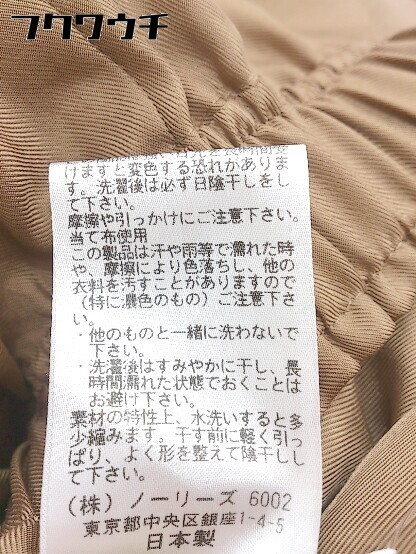 フクワウチ
けますと変色する恐れがありま
す。洗濯後は必ず日陰干しをし
て下さい。
摩擦や引っかけにご注意下さい。
当て布使用
この製品は汗や雨等で濡れた時
や、摩擦により色落ちし、他の
衣料を汚すことがありますので
(特に濃色のもの)ご注意下さ
い。
・他のものと一緒に洗わないで
下さい。
・洗濯後はすみやかに干し、長
時間濡れた状態でおくことは
お避け下さい。
素材の特性上、水洗いすると多
少縮みます。干す前に軽く引っ
ぱり、よく形を整えて陰干しし
て下さい。
(株)ノーリーズ 6002
東京都中央区銀座1-4-5
日本製